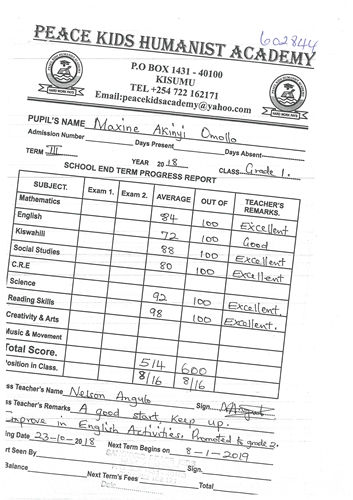 602844
PEACE KIDS HUMANIST ACADEMY
P.O BOX 1431 - 40100
KISUMU
TEL +254 722 162171
Email:peacekidsacademy@yahoo.com
HARD WORK PAYS HARD WORK PAYS
PUPIL'S NAME Maxine Akinyi Omollo
Admission Number Days Present Days Absent
TERM III YEAR 2018 CLASS Grade 1.
SCHOOL END TERM PROGRESS REPORT
SUBJECT. Exam 1. Exam 2. AVERAGE OUT OF TEACHER'S REMARKS.
Mathematics 84 100 Excellent
English 72 100 Good
Kiswahili 88 100 Excellent
Social Studies 80 100 Excellent
C.R.E
Science 92 100 Excellent.
Reading Skills 98 100 Excellent.
Creativity & Arts
Music & Movement
Total Score. 514 600
Position in Class. 8/16 8/16
ss Teacher's Name Nelson Angulo Sign.
ss Teacher's Remarks A good start keep up.
Improve in English Activities. Promoted to grade 2.
ing Date 23-10-2018 Next Term Begins on 8-1-2019
rt Seen By Sign
Balance Next Term's Fees Total
Date